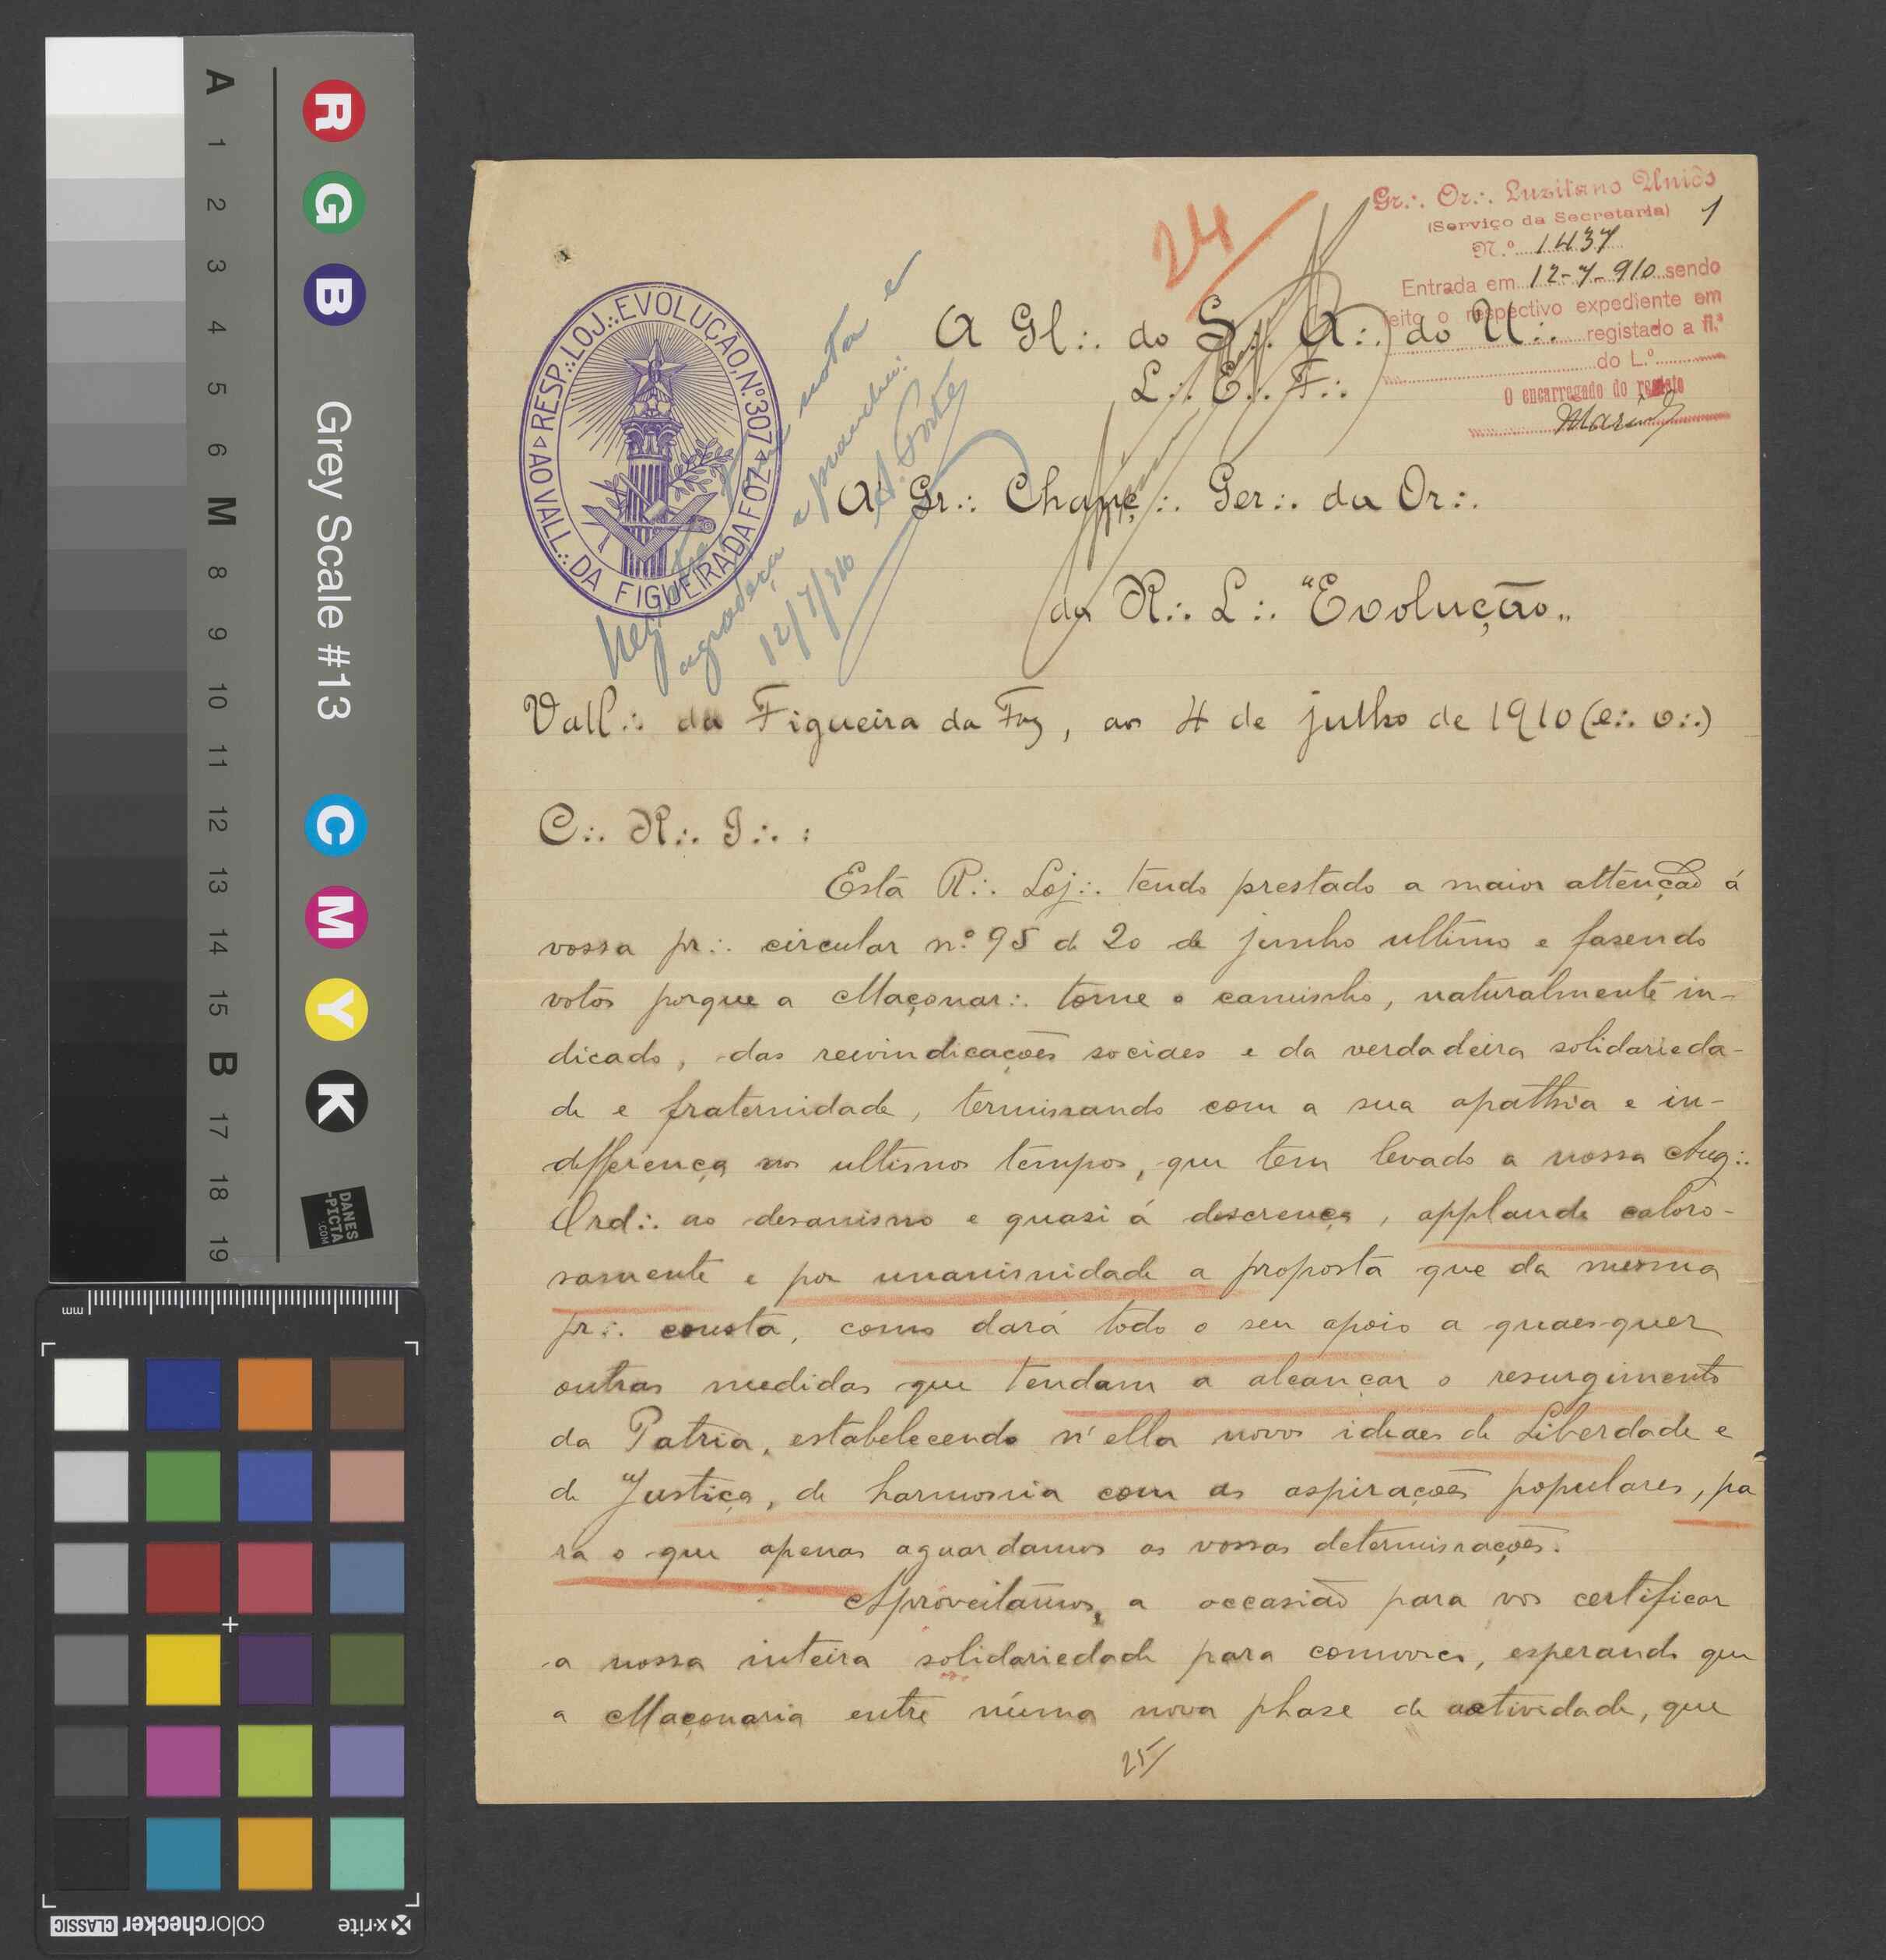 A
1
2
3
4
5
6
M
8
9
10
11
12
13
14
15
B
17
18
19
R G B
Grey Scale #13
C M Y K
DANES
-PICTA
.COM
mm
x-rite
colorchecker CLASSIC
24
Gr∴ Or∴ Luzitano Unido
(Serviço da Secretaria)
1
N.º 1437
Entrada em 12-7-910 sendo
feito o respectivo expediente em
registado a fl.ª
do L.º
O encarregado do registo
RESP∴ LOJ∴ EVOLUÇÃO, Nº 307
AO VALL∴ DA FIGUEIRA DA FOZ
nota e
agradeça a prancha.
12/7/910
A Gl∴ do S∴ A∴ do U∴
L∴ E∴ F∴
A Gr∴ Chanç∴ Ger∴ da Or∴
da R∴ L∴ "Evolução"
Vall∴ da Figueira da Foz, aos 4 de julho de 1910 (e∴ v∴)
C∴ R∴ I∴ :
Esta R∴ Loj∴ tendo prestado a maior attenção á
vossa pr∴ circular nº 95 de 20 de junho ultimo e fasendo
votos porque a Maçonar∴ tome o caminho, naturalmente in-
dicado, das reivindicações sociaes e da verdadeira solidarieda-
de e fraternidade, terminando com a sua apathia e in-
differença nos ultimos tempos, que tem levado a nossa Aug∴
Ord∴ ao desanimo e quasi á descrença, applaude caloro-
samente e por unanimidade a proposta que da mesma
pr∴ consta, como dará todo o seu apoio a quaesquer
outras medidas que tendam a alcançar o resurgimento
da Patria, estabelecendo n'ella novos ideaes de Liberdade e
de Justiça, de harmonia com as aspirações populares, pa
ra o que apenas aguardamos as vossas determinações.
Aproveitamos, a occasião para vos certificar
a nossa inteira solidariedade para comvosco, esperando que
a Maçonaria entre n'uma nova phase de actividade, que
25/